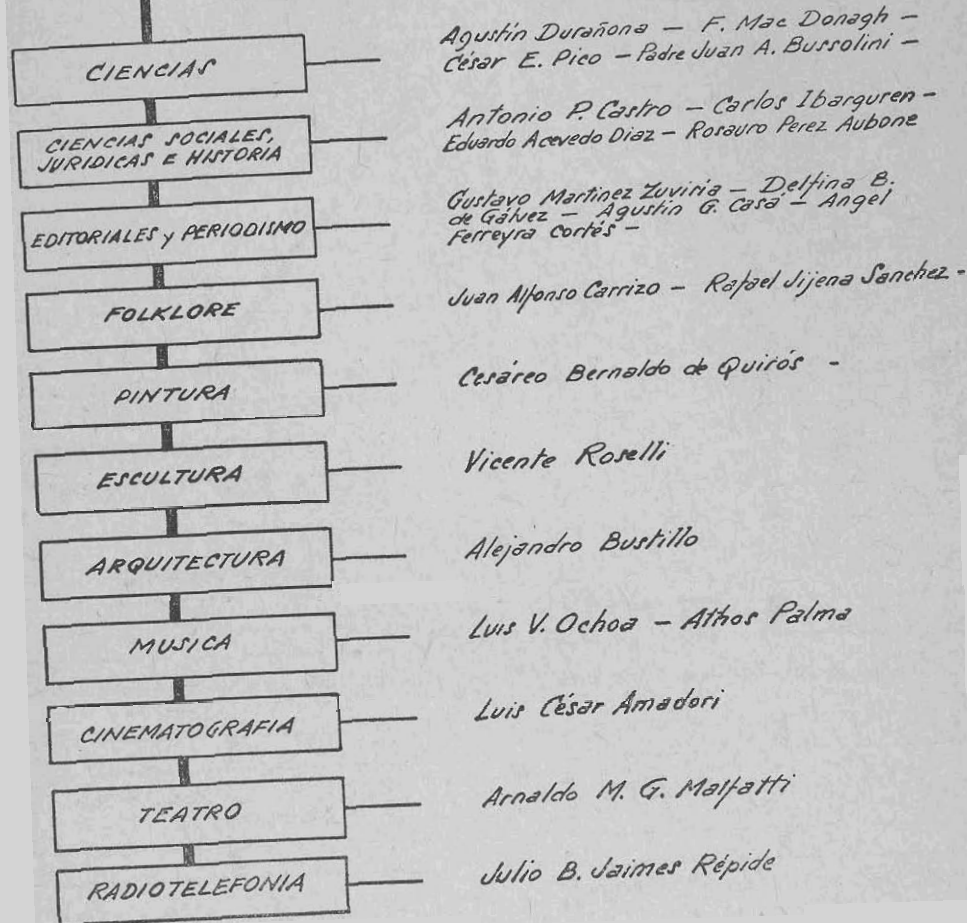 CIENCIAS
Agustín Durañona — F. Mac Donagh —
César E. Pico — Padre Juan A. Bussolini —
CIENCIAS SOCIALES,
JURIDICAS E HISTORIA
Antonio P. Castro — Carlos Ibarguren —
Eduardo Acevedo Diaz — Rosauro Perez Aubone
EDITORIALES y PERIODISMO
Gustavo Martinez Zuviría — Delfina B.
de Gálvez — Agustin G. Casá — Angel
Ferreyra Cortés —
FOLKLORE
Juan Alfonso Carrizo — Rafael Jijena Sanchez —
PINTURA
Cesáreo Bernaldo de Quirós —
ESCULTURA
Vicente Roselli
ARQUITECTURA
Alejandro Bustillo
MUSICA
Luis V. Ochoa — Athos Palma
CINEMATOGRAFIA
Luis César Amadori
TEATRO
Arnaldo M. G. Malfatti
RADIOTELEFONIA
Julio B. Jaimes Répide